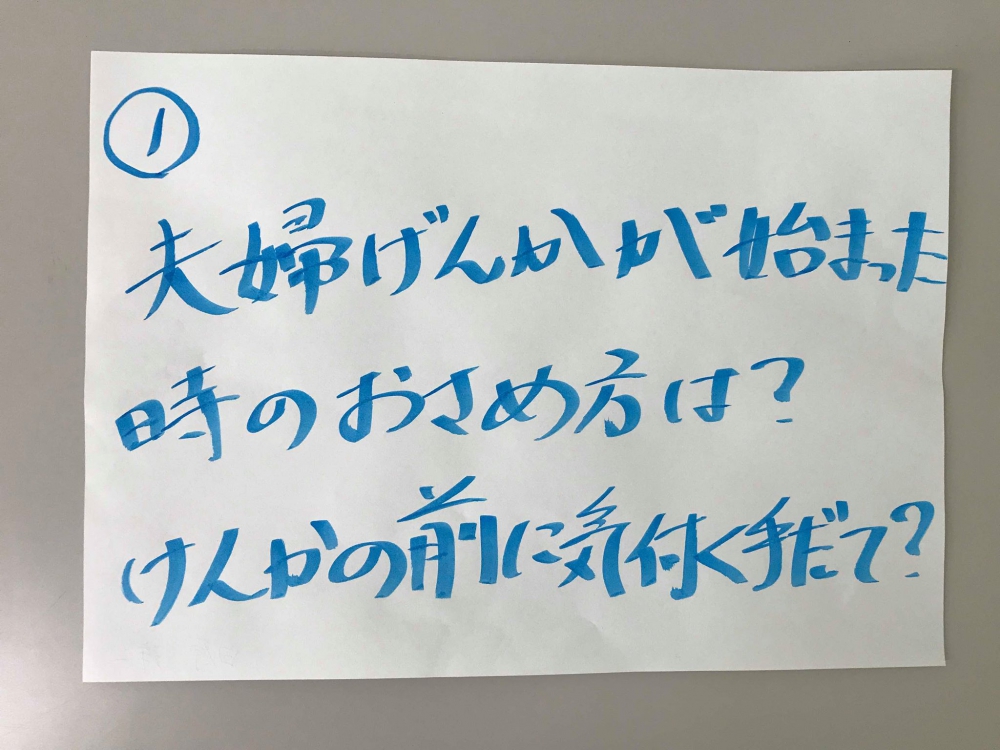 ①
夫婦げんかが始まった
時のおさめ方は?
けんかの前に気付く手だて?